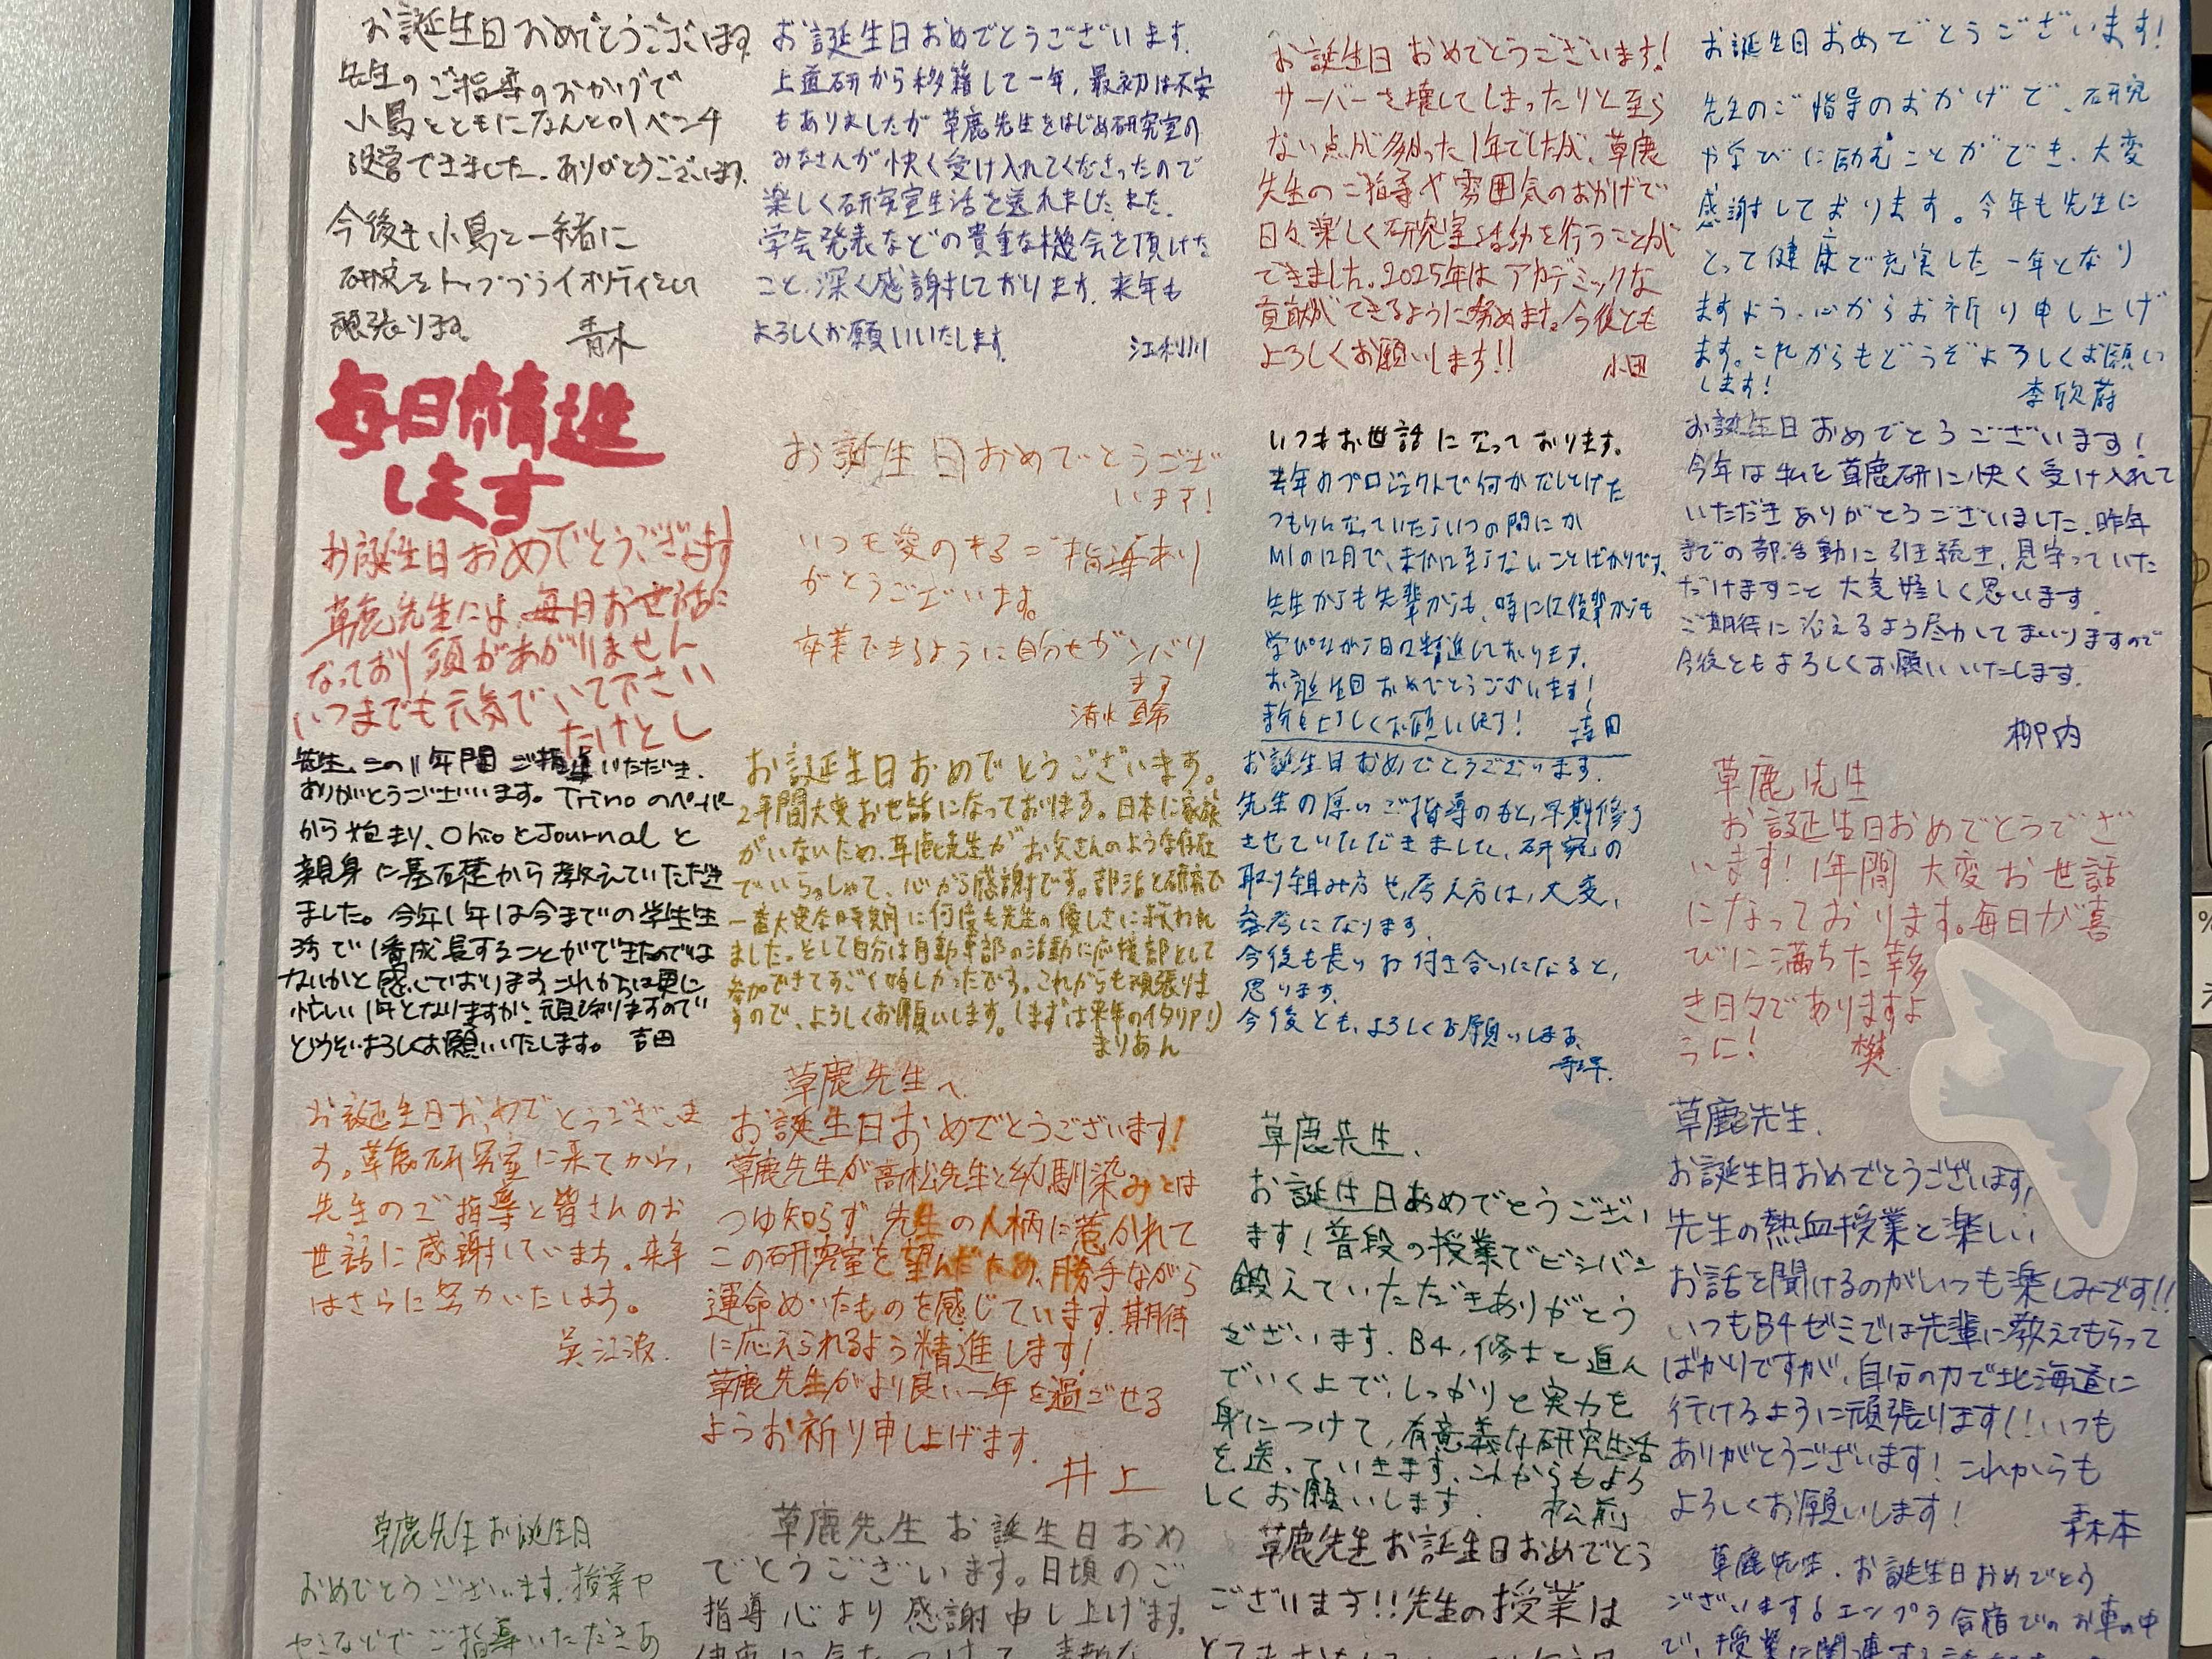 お誕生日おめでとうございます。
先生のご指導のおかげで
小島とともになんとかベンチ
設営できました。ありがとうございます。
今後も小島と一緒に
研究をトッププライオリティとして
頑張ります。
青木
毎日精進
します
お誕生日おめでとうございます
草鹿先生には、毎日お世話に
なっており頭があがりません
いつまでも元気でいて下さい
たけとし
先生、この1年間ご指導いただき、
ありがとうございます。Trinoのペーパー
から始まり、OhioとJournalと
親身に基礎から教えていただき
ました。今年1年は今までの学生生
活で1番成長することができたのでは
ないかと感じております。これからは更に
忙しい1年となりますが、頑張りますので
どうぞよろしくお願いいたします。 吉田
お誕生日おめでとうございま
す。草鹿研究室に来てから、
先生のご指導と皆さんのお
世話に感謝しています。来年
はさらに努力いたします。
吴江波.
草鹿先生お誕生日
おめでとうございます。授業や
ゼミなどでご指導いただきあ
お誕生日おめでとうございます。
上道研から移籍して一年、最初は不安
もありましたが草鹿先生をはじめ研究室の
みなさんが快く受け入れてくださったので
楽しく研究室生活を送れました。また、
学会発表などの貴重な機会を頂けた
こと、深く感謝しております。来年も
よろしくお願いいたします。
江利川
お誕生日おめでとうござ
います!
いつも愛のあるご指導あり
がとうございます。
卒業できるように自分もガンバリ
ます
清水
お誕生日おめでとうございます。
2年間大変お世話になっております。日本に家族
がいないため、草鹿先生がお父さんのような存在
でいらっしゃて、心から感謝です。部活と研究で
一番大変な時期に何度も先生の優しさに救われ
ました。そして自分は自動車部の活動に応援部として
参加できてすごく嬉しかったです。これからも頑張りま
すので、よろしくお願いします。(まずは来年のイタリア!)
まりあん
草鹿先生へ
お誕生日おめでとうございます!
草鹿先生が高松先生と幼馴染みとは
つゆ知らず、先生の人柄に惹かれて
この研究室を望んだため、勝手ながら
運命めいたものを感じています。期待
に応えられるよう精進します!
草鹿先生がより良い一年を過ごせる
ようお祈り申し上げます。
井上
草鹿先生お誕生日おめ
でとうございます。日頃のご
指導心より感謝申し上げます。
健康に気をつけて、素敵な
お誕生日おめでとうございます!
サーバーを壊してしまったりと至ら
ない点が多かった1年でしたが、草鹿
先生のご指導や雰囲気のおかげで
日々楽しく研究室活動を行うことが
できました。2025年はアカデミックな
貢献ができるように努めます。今後とも
よろしくお願いします!!
小田
いつもお世話になっております。
去年のプロジェクトで何かなしとげた
つもりになっていたらいつの間にか
M1の12月で、未だに至らないことばかりです。
先生からも先輩からも、時には後輩からも
学びながら日々精進しております。
お誕生日おめでとうございます!
よろしくお願いします!
お誕生日おめでとうございます。
先生の厚いご指導のもと、早期修了
させていただきました。研究の
取り組み方や、考え方は、大変、
参考になります。
今後も長いお付き合いになると、
思います。
今後とも、よろしくお願いします。
草鹿先生、
お誕生日おめでとうござい
ます!普段の授業でビシバシ
鍛えていただきありがとう
ございます。B4、修士と進ん
でいく上で、しっかりと実力を
身につけて、有意義な研究生活
を送っていきます。これからもよろ
しくお願いします。
松前
草鹿先生お誕生日おめでとう
ございます!!先生の授業は
お誕生日おめでとうございます!
先生のご指導のおかげで、研究
や学びに励むことができ、大変
感謝しております。今年も先生に
とって健康で充実した一年となり
ますよう、心からお祈り申し上げ
ます。これからもどうぞよろしくお願い
します!
李欣蔚
お誕生日おめでとうございます!
今年は私を草鹿研に快く受け入れて
いただきありがとうございました。昨年
までの部活動に引き続き、見守っていた
だけますこと大変嬉しく思います。
ご期待に沿えるよう尽力してまいりますので
今後ともよろしくお願いいたします。
柳内
草鹿先生
お誕生日おめでとうござ
います!1年間大変お世話
になっております。毎日が喜
びに満ちた幸多
き日々でありますよ
うに!
樊
草鹿先生、
お誕生日おめでとうございます。
先生の熱血授業と楽しい
お話を聞けるのがいつも楽しみです!!
いつもB4ゼミでは先輩に教えてもらって
ばかりですが、自分の力で北海道に
行けるように頑張ります!!いつも
ありがとうございます!これからも
よろしくお願いします!
森本
草鹿先生、お誕生日おめでとう
ございます。エンプラ合宿でのお車の中
で、授業に関連する